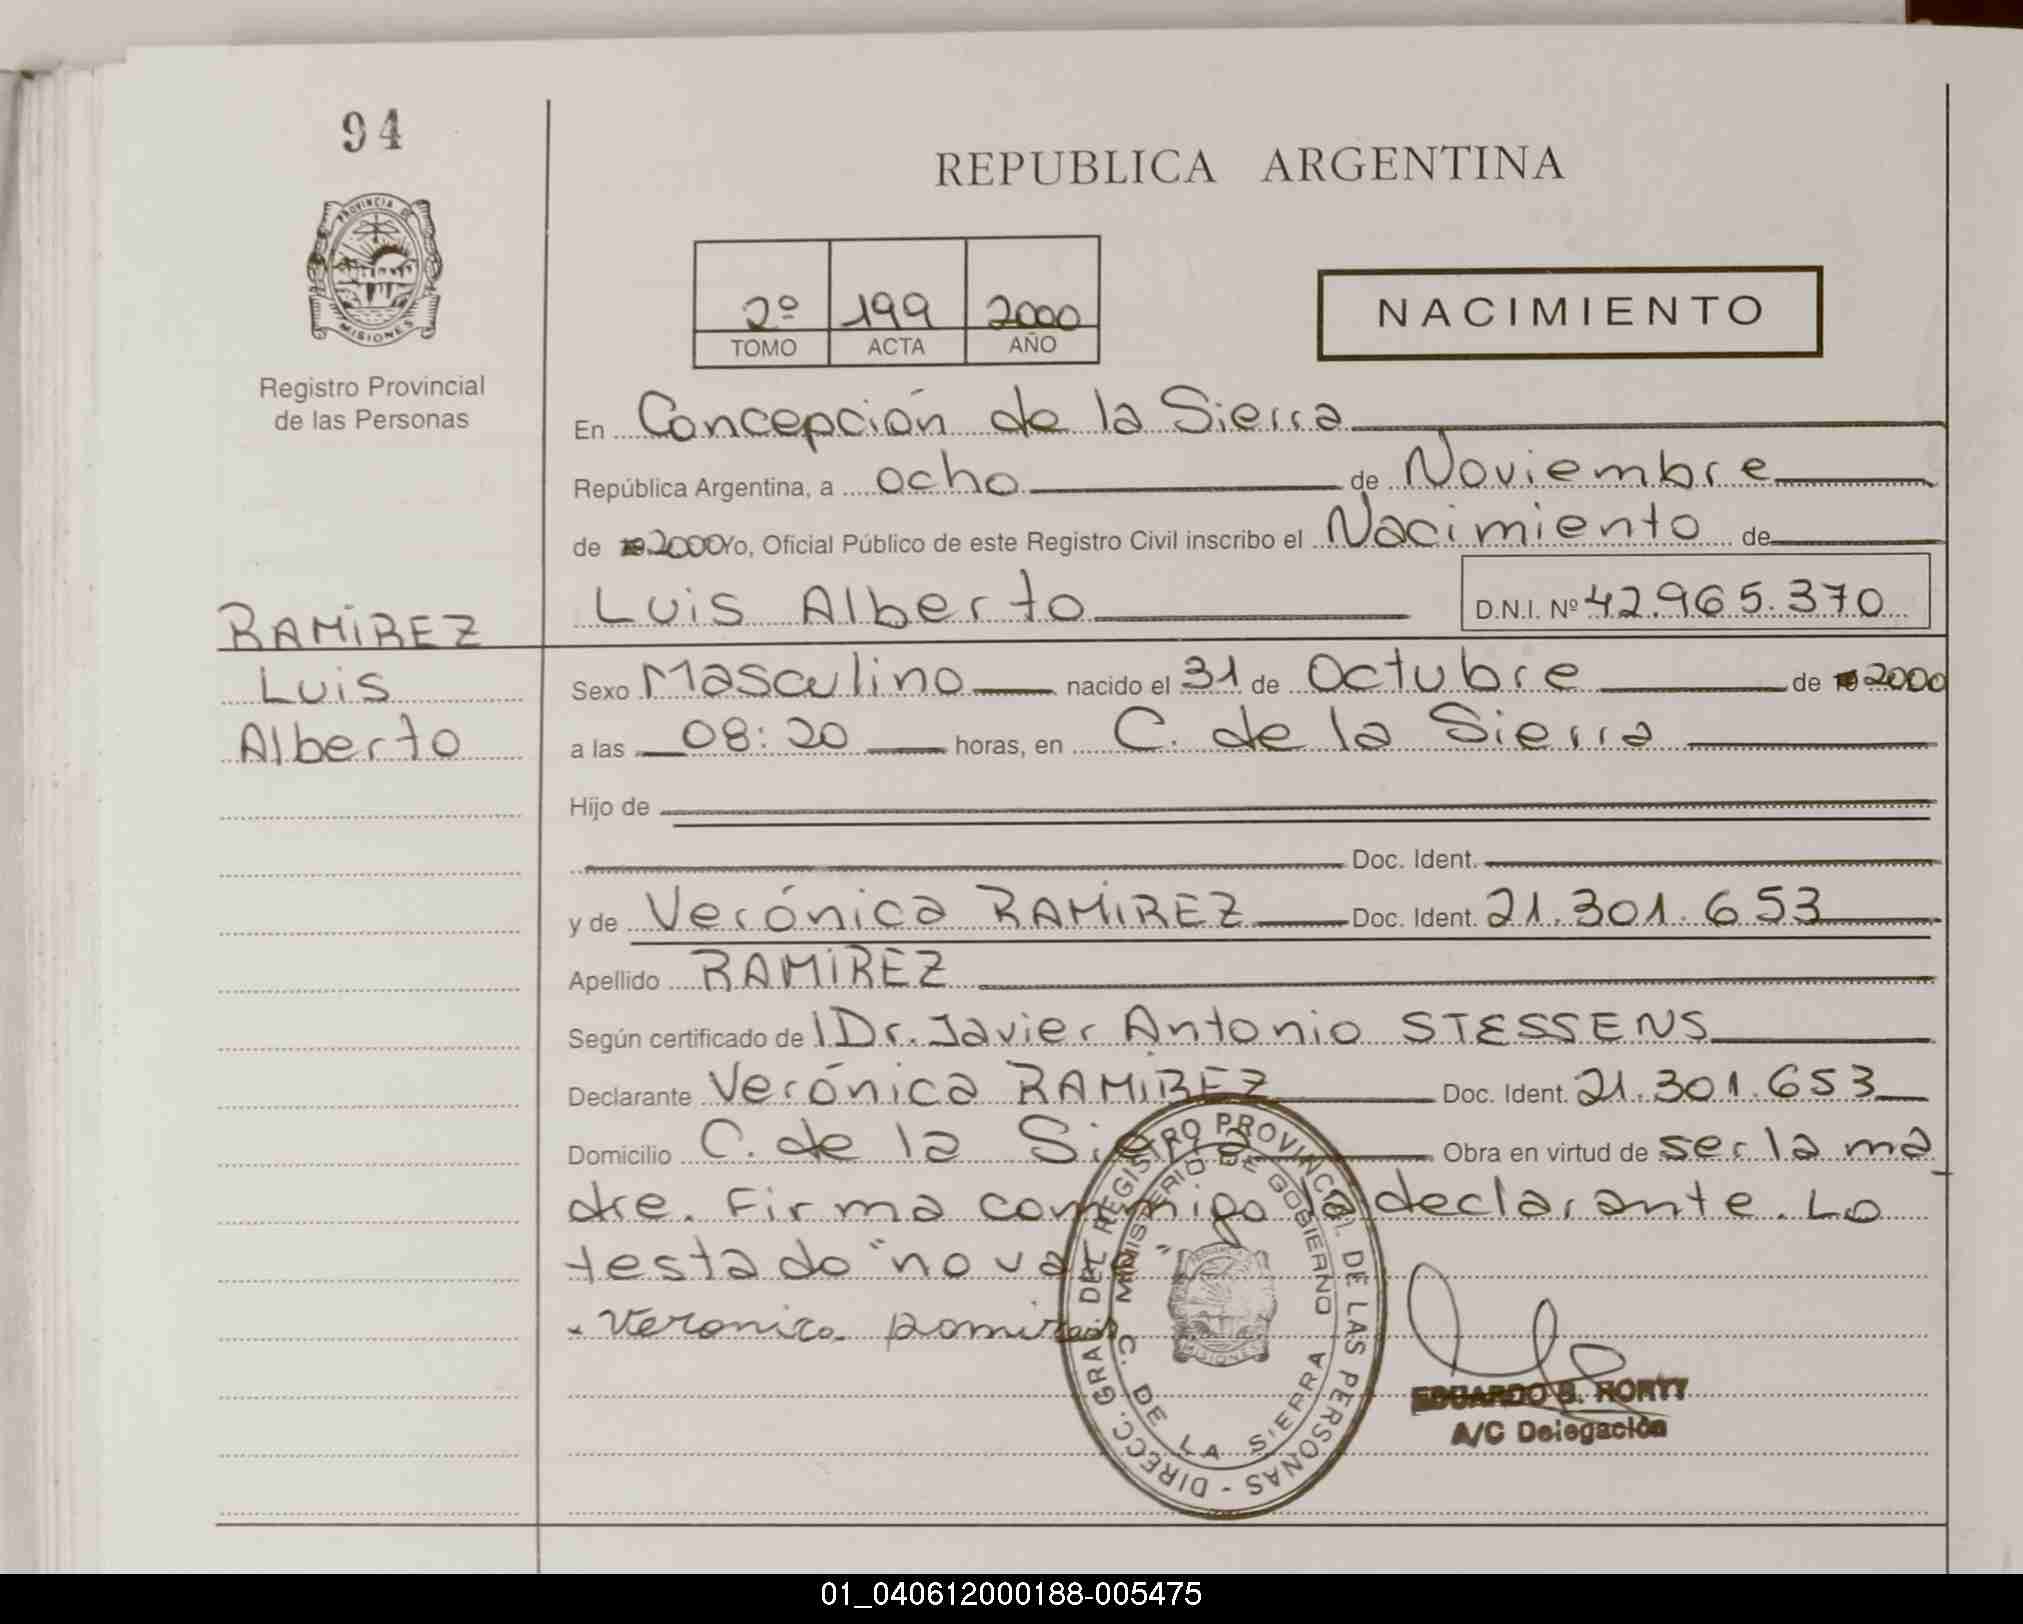 94
REPUBLICA ARGENTINA
PROVINCIA DE MISIONES
Registro Provincial
de las Personas
2º 199 2000
TOMO ACTA AÑO
NACIMIENTO
En Concepción de la Sierra
República Argentina, a ocho de Noviembre
de 2000 Yo, Oficial Público de este Registro Civil inscribo el Nacimiento de
Luis Alberto D.N.I. Nº 42.965.370
RAMIREZ
Luis
Alberto
Sexo Masculino nacido el 31 de Octubre de 2000
a las 08:20 horas, en C. de la Sierra
Hijo de
Doc. Ident.
y de Verónica RAMIREZ Doc. Ident. 21.301.653
Apellido RAMIREZ
Según certificado de Dr. Javier Antonio STESSENS
Declarante Verónica RAMIREZ Doc. Ident. 21.301.653
Domicilio C. de la Sierra Obra en virtud de ser la ma
dre. Firma conmigo la declarante. Lo
testado "no vale"
Veronica ramirez
DIRECC. GRAL. DEL REGISTRO PROVINCIAL DE LAS PERSONAS -
MINISTERIO DE GOBIERNO
C. DE LA SIERRA
MISIONES
EDUARDO
A/C Delegación
01_040612000188-005475